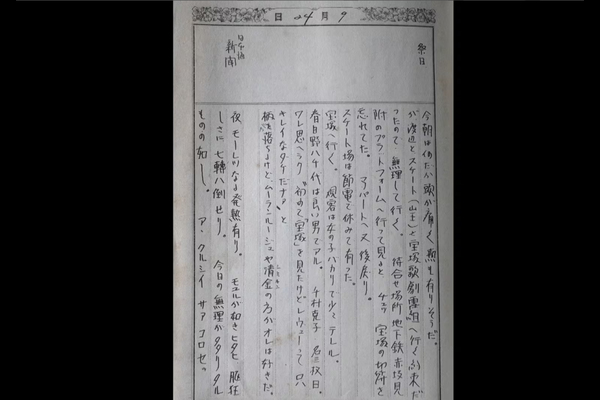 9月24日
祭日
日本語
新聞
今朝はめだか頭が有く熱も有りそうだ。
が渡辺とスケート(山王)と宝塚歌劇雪組へ行く約束だ
ったので 無理して行く。 待合せ場所 地下鉄赤坂見
附のプラットフォームへ行って見ると チェッ 宝塚の切符を
忘れてた。 アパートへ又後戻り。
スケート場は節電で休みて有った。
宝塚へ行く。 観客は女の子バカリで少々テレル。
春日野八千代は良い男でアル。 千村克子 名三枚目。
ワレ思ヘラク "初めて宝塚を見たけどレヴューって只
キレイなダケだナア" と
格は落ちるけどムーランルージュや清金の方がオレは好きだ。
夜 モーレツなる発熱有り。 モユルが如きヒタヒ 胆狂
しさに 七轉八倒せり。 今日の無理がタタリタル
ものの如し。 ア、クルシイ サアコロセっ